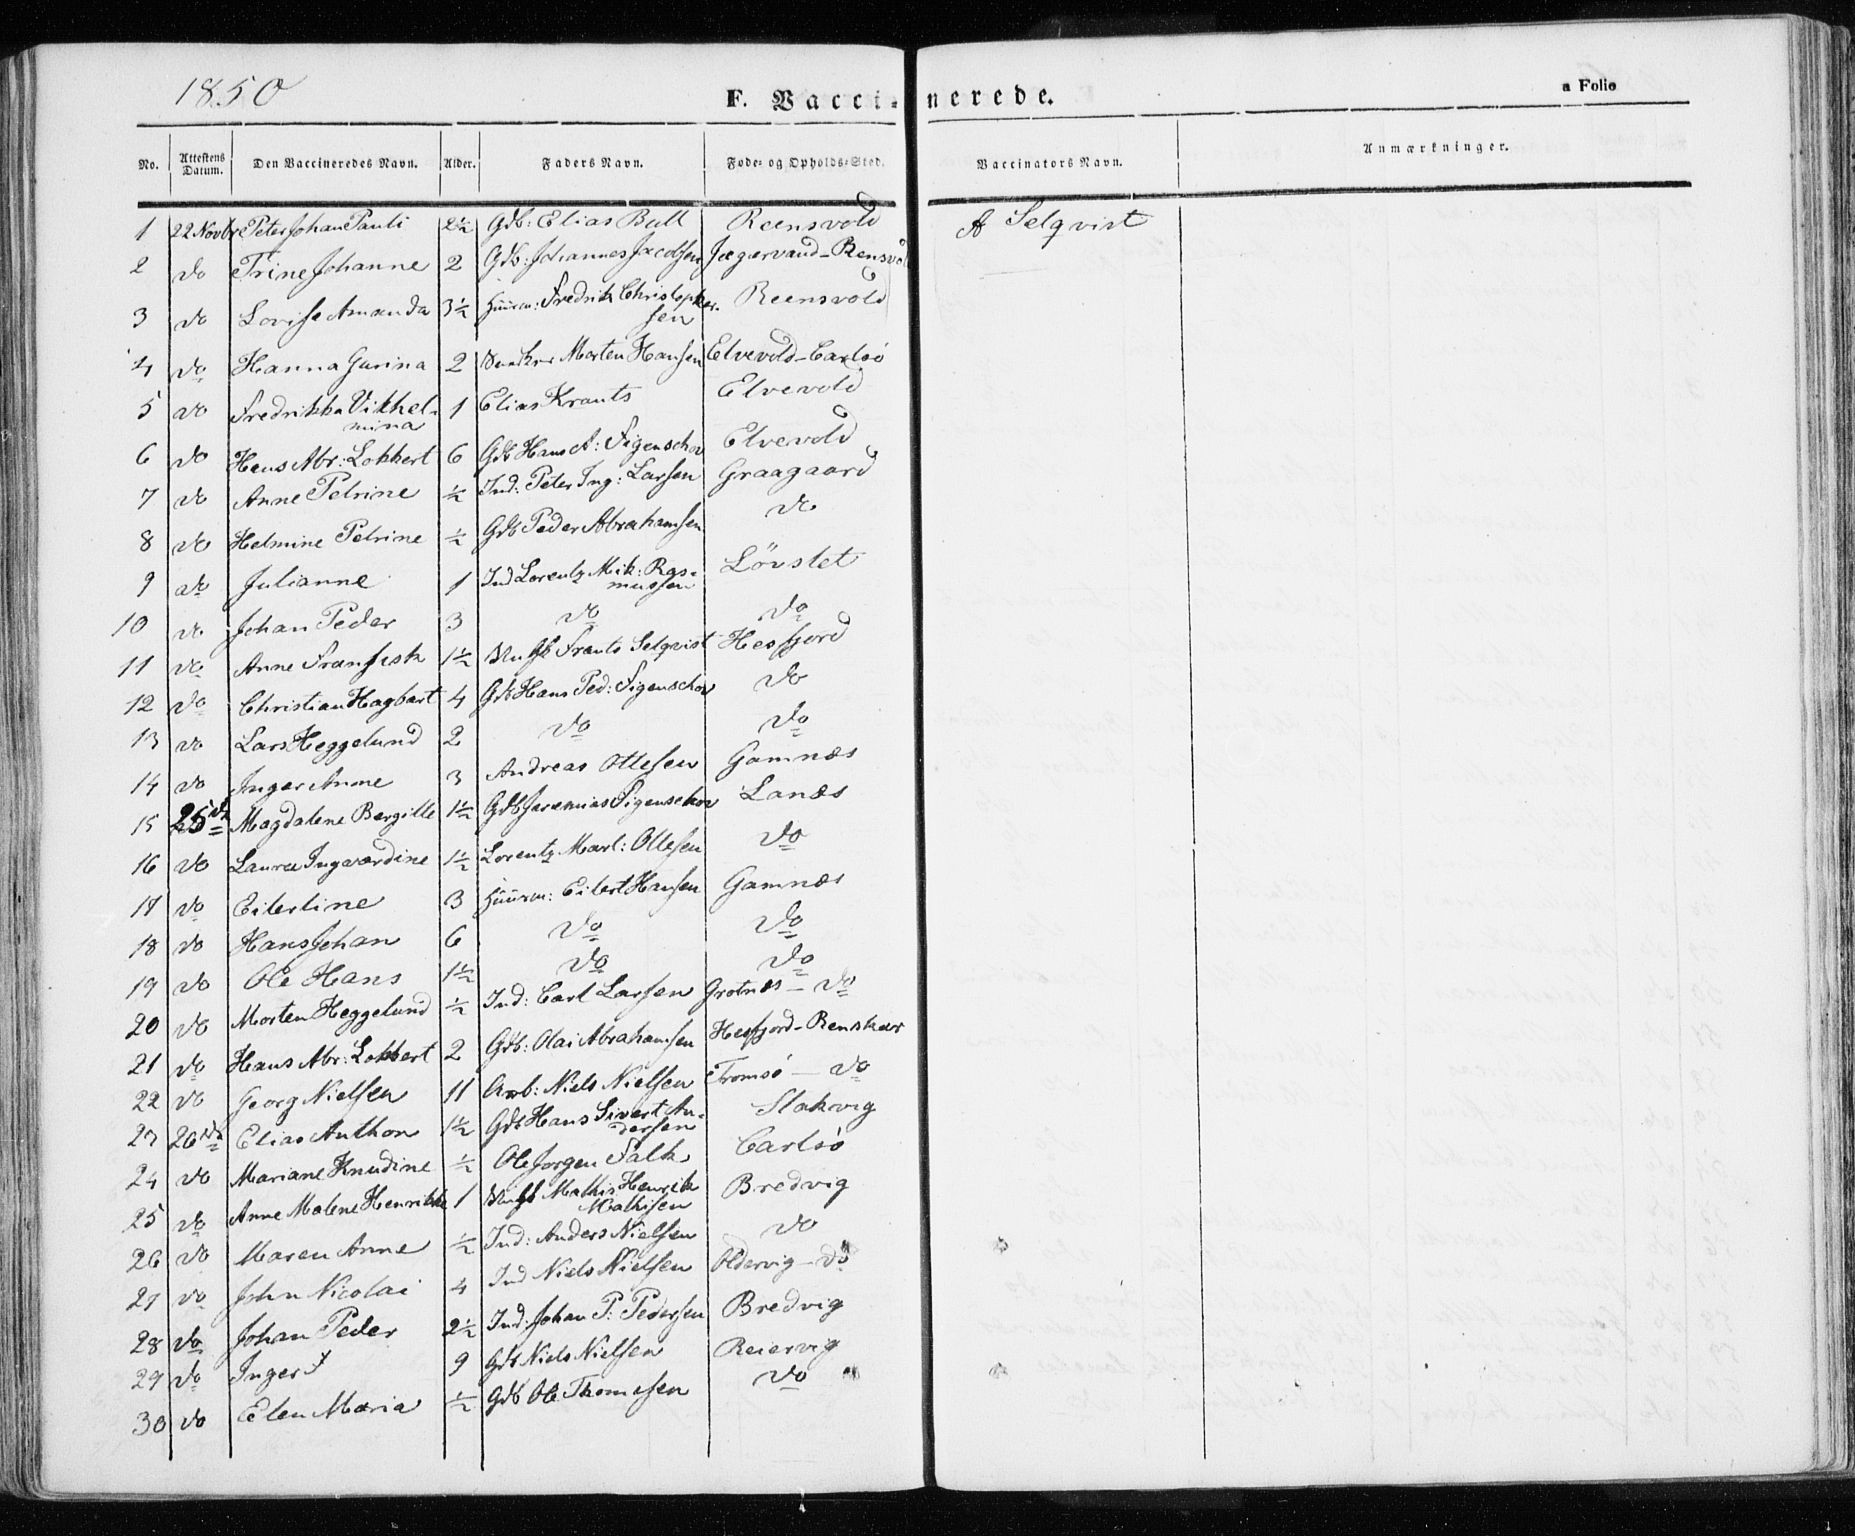 1850
F. Vaccinerede.
a Folio
No. Attestens Datum. Den Vaccineredes Navn. Alder. Faders Navn. Føde- og Opholds-Sted. Vaccinators Navn. Anmærkninger.
1 22 Novbr Peter Johan Pauli 2½ Gdb: Elias Bull Reensvold A Selqvist
2 do Trine Johanne 2 Gdb: Johannes Jacobsen Jægervand - Rensvo
3 do Lovise Amanda 3½ Huusm: Fredrik Christopher-
sen Reensvold
4 do Hanna Gurina 2 Morten Hansen Elvevold - Carlsö
5 do Fredrikka Vilhel-
mina 1 Elias Krants Elvevold
6 do Hans Abr: Lokkert 6 Gdb Hans A: Figenschov Elvevold
7 do Anne Petrine ½ Ind: Peter Ing: Larsen Graagaard
8 do Helmine Petrine ½ Gdb Peder Abrahamsen do
9 do Julianne 1 Ind Lorentz Mik: Ras-
mussen Lövslet
10 do Johan Peder 3 do do
11 do Anne Fransisk 1½ Frants Selqvist Hesfjord
12 do Christian Hagbart 4 Gdb Hans Ped: Figenschov do
13 do Lars Heggelund 2 do do
14 do Inger Anne 3 Andreas Ottesen Gamnæs
15 25 do Magdalene Bergitte 1½ Gdb Jeremias Figenschov Lanæs
16 do Laura Ingvardine 1½ Lorentz Mart: Ottesen do
17 do Eilertine 3 Huusm: Eilert Hansen Gamnæs
18 do Hans Johan 6 do do
19 do Ole Hans 1½ do do
20 do Morten Heggelund ½ Ind: Carl Larsen Grotnæs - do
21 do Hans Abr: Lokkert 2 Gdb: Olai Abrahamsen Hesfjord - Renskar
22 do Georg Nielsen 11 Arb: Niels Nielsen Tromsö - do
23 26 do Elias Anthon 1½ Gdb Hans Sivert An-
dersen Slakvig
24 do Mariane Knudine ½ Ole Jorgen Falk Carlsö
25 do Anne Malene Henrikke 1 Mathis Henrik
Mathisen Bredvig
26 do Maren Anne ½ Ind: Anders Nielsen do
27 do John Nicolai 4 Ind Niels Nielsen Oldervig - do
28 do Johan Peder 2½ Ind: Johan P: Pedersen Bredvig
29 do Inger 9 Gdb Niels Nielsen Reiervig
30 do Elen Maria ½ Gdb Ole Thomesen do